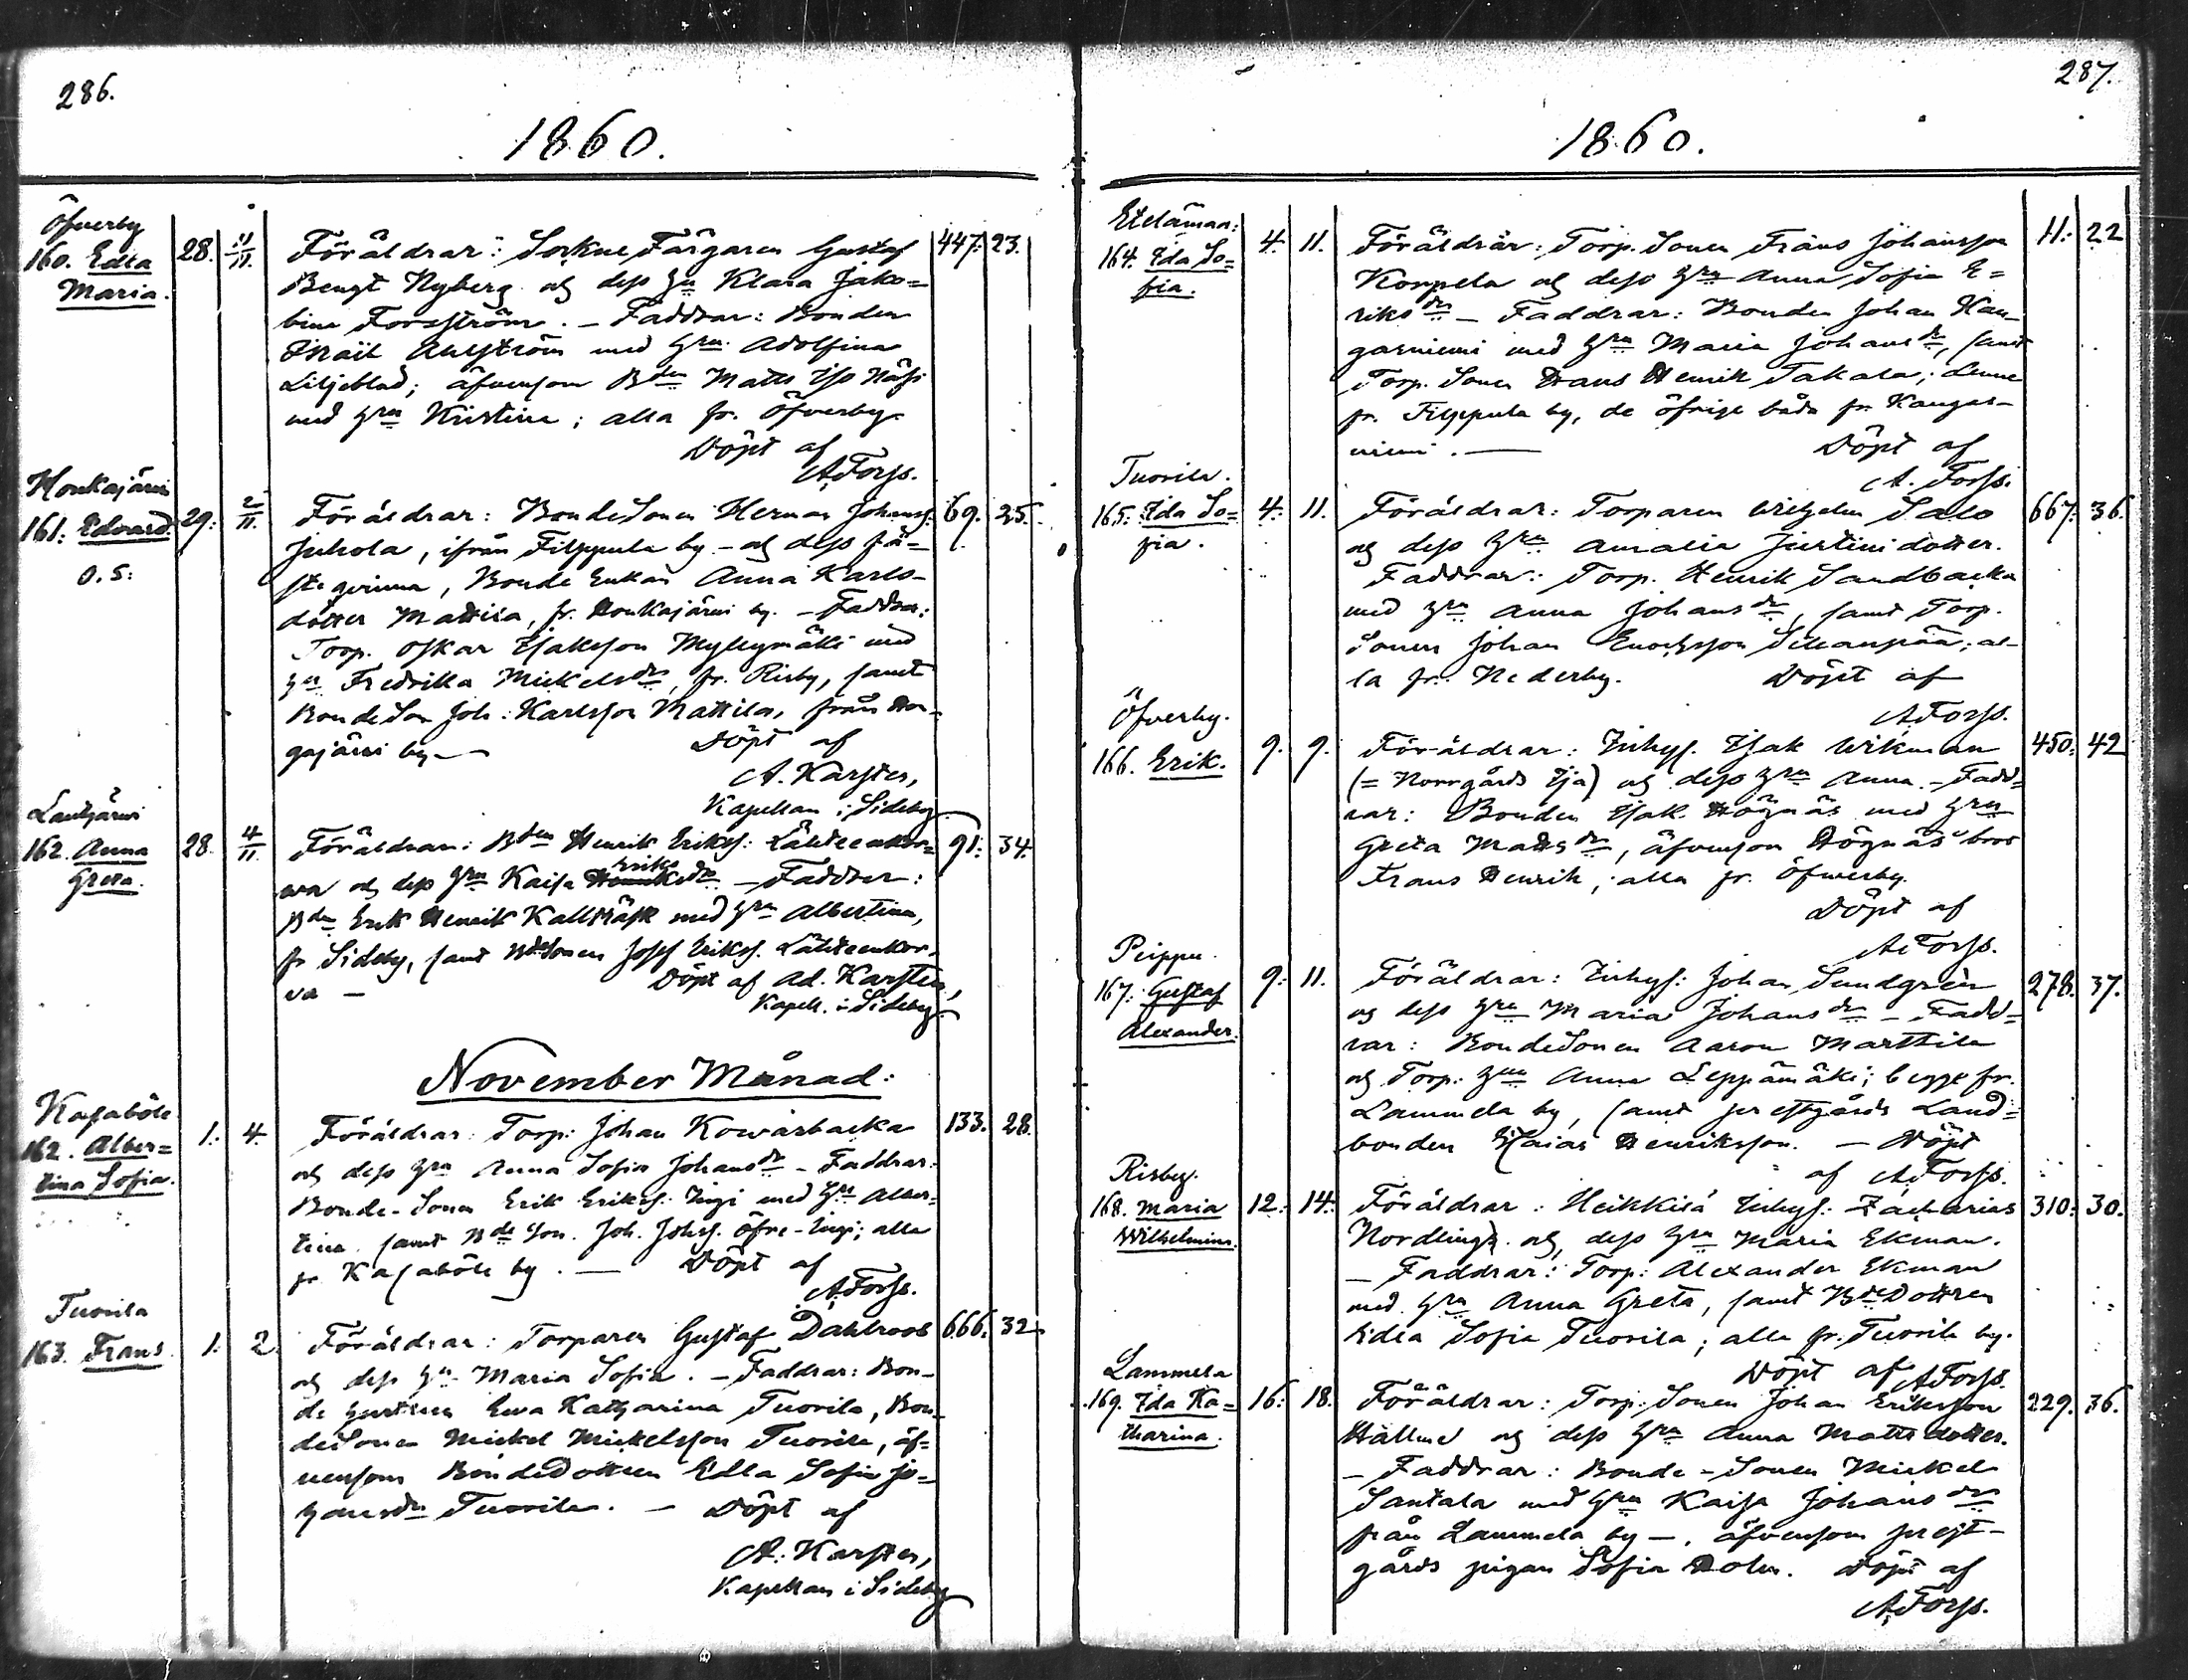 286.
1860.
Öfverby
160. Edla
Maria.
28. 11/11.
Föräldrar: Sockne Färgaren Gustaf
Bengt Nyberg och dess hu Klara Jako=
bina Forsström. – Faddrar: Bonden
Israël Ahlström med hru Adolfina
Liljeblad; äfvensom Bden Matts Iso Näsi
med hru Kristina; alla fr. Öfverby.
Döpt af
A. Forss.
447. 23.
Honkajärvi
161. Edvard
o. ä:
29. 2/11.
Föräldrar: BondeSonen Herman Johanss:
Juhola, ifrån Filppula by – och dess fä=
steqvinna, Bonde Enkan Anna Karls=
dotter Mattila, fr. Honkajärvi by. – Faddrar:
Torp. Oskar Isaksson Myllymäki med
hu Fredrika Mickelsdr, fr. Risby, samt
BondeSon Joh: Karlsson Mattila, från Hon=
gajärvi by. –
Döpt af
A. Karsten,
Kapellan i Sideby
69. 25.
Lautjärvi
162. Anna
Greta.
28. 4/11.
Föräldrar: Bden Henrik Erikss: Lähteenkor=
va och dess hru Kaisa Eriksdr – Faddrar:
Bdn Erik Henrik Kallträsk med hru Albertina,
fr Sideby, samt BdeSonen Josef Erikss. Lähteenkor=
va –
Döpt af Ad. Karsten,
Kapell. i Sideby.
91. 34.
November Månad:
Kasaböle
162. Alber=
tina Sofia.
1. 4.
Föräldrar: Torp: Johan Kowarbacka
och dess hru Anna Sofia Johansdr – Faddrar:
Bonde-Sonen Erik Erikss: Ingi med hru Alber=
tina, samt Bde Son. Joh. Johss. Öfre-Ingi; alla
fr Kasaböle by. –
Döpt af
A. Forss.
133. 28.
Tuorila
163. Frans
1. 2.
Föräldrar: Torparen Gustaf Dahlroos
och dess hru Maria Sofia. – Faddrar: Bon=
de hustrun Ewa Katharina Tuorila, Bon=
deSonen Mickel Mickelsson Tuorila, äf=
vensom BondeDottren Edla Sofia Jo=
hansdr Tuorila. – Döpt af
A. Karsten,
Kapellan i Sideby
666. 32.
287.
1860.
Etelämaa:
164. Ida So=
fia.
4. 11.
Föräldrar: Torp. Sonen Frans Johansson
Korpela och dess hru Anna Sofia E=
riksdr – Faddrar: Bonden Johan Kan=
gasniemi med hru Maria Johansdr, samt
Torp. Sonen Frans Henrik Takala; denne
fr. Filppula by, de öfrige båda fr. Kangas=
niemi. –
Döpt af
A. Forss.
11: 22
Tuorila.
165. Ida So=
fia.
4. 11.
Föräldrar: Torparen Wilhelm Salo
och dess hru Amalia Justinidotter.
Faddrar: Torp. Henrik Sandbacka
med hru Anna Johansdr, samt Torp.
Sonen Johan Enochsson Silvanpää; al=
la fr. Nederby.
Döpt af
A. Forss.
667. 36.
Öfverby.
166. Erik.
9. 9.
Föräldrar: Inhys. Isak Wikman
(= Norrgårds Isa) och dess hru Anna. – Fadd=
rar: Bonden Isak Högnäs med hru
Greta Mattsdr, äfvensom Högnäs' bror
Frans Henrik; alla fr. Öfwerby.
Döpt af
A. Forss.
450. 42
Peippu.
167. Gustaf
Alexander.
9. 11.
Föräldrar: Inhys: Johan Sundgrén
och dess hru Maria Johansdr – Fadd=
rar: BondeSonen Aaron Marttila
och Torp. hru Anna Leppämäki; begge fr.
Lammela by, samt prestgårds Land=
bonden Esaias Henriksson. – Döpt
af A. Forss.
278. 37.
Risby.
168. Maria
Wilhelmina.
12. 14.
Föräldrar: Heikkilä Inhys: Zacharias
Nordling och dess hru Maria Ekman.
– Faddrar: Torp: Alexander Ekman
med hru Anna Greta, samt BdeDottren
Edla Sofia Tuorila; alla fr. Tuorila by.
Döpt af A. Forss.
310. 30.
Lammela
169. Ida Ka=
tharina.
16. 18.
Föräldrar: Torp. Sonen Johan Eriksson
Hällmé och dess hru Anna Mattsdotter.
– Faddrar: Bonde-Sonen Mickel
Santala med hru Kaisa Johansdr
från Lammela by –, äfvensom prest=
gårds pigan Sofia Holm. Döpt af
A. Forss.
229. 36.